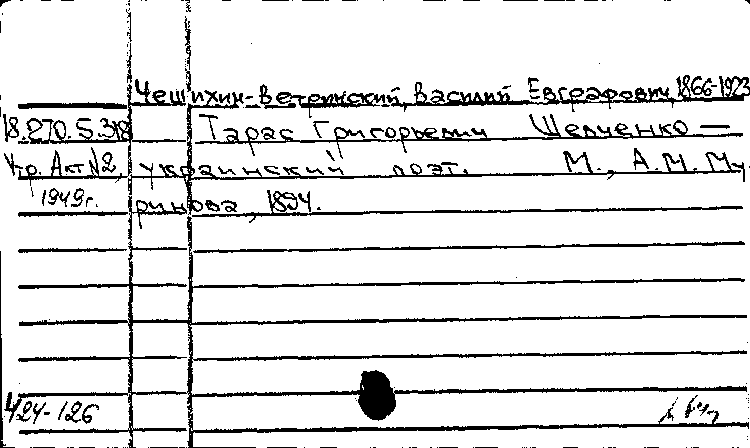 Чешихин-Ветринский, Василий Евграфович, 1866-1923
18.270.5.318 Тарас Григорьевич Шевченко —
Утр. Акт N2, украинский поэт. М., А.М. Му-
1949г. ринова, 1894.
424-126